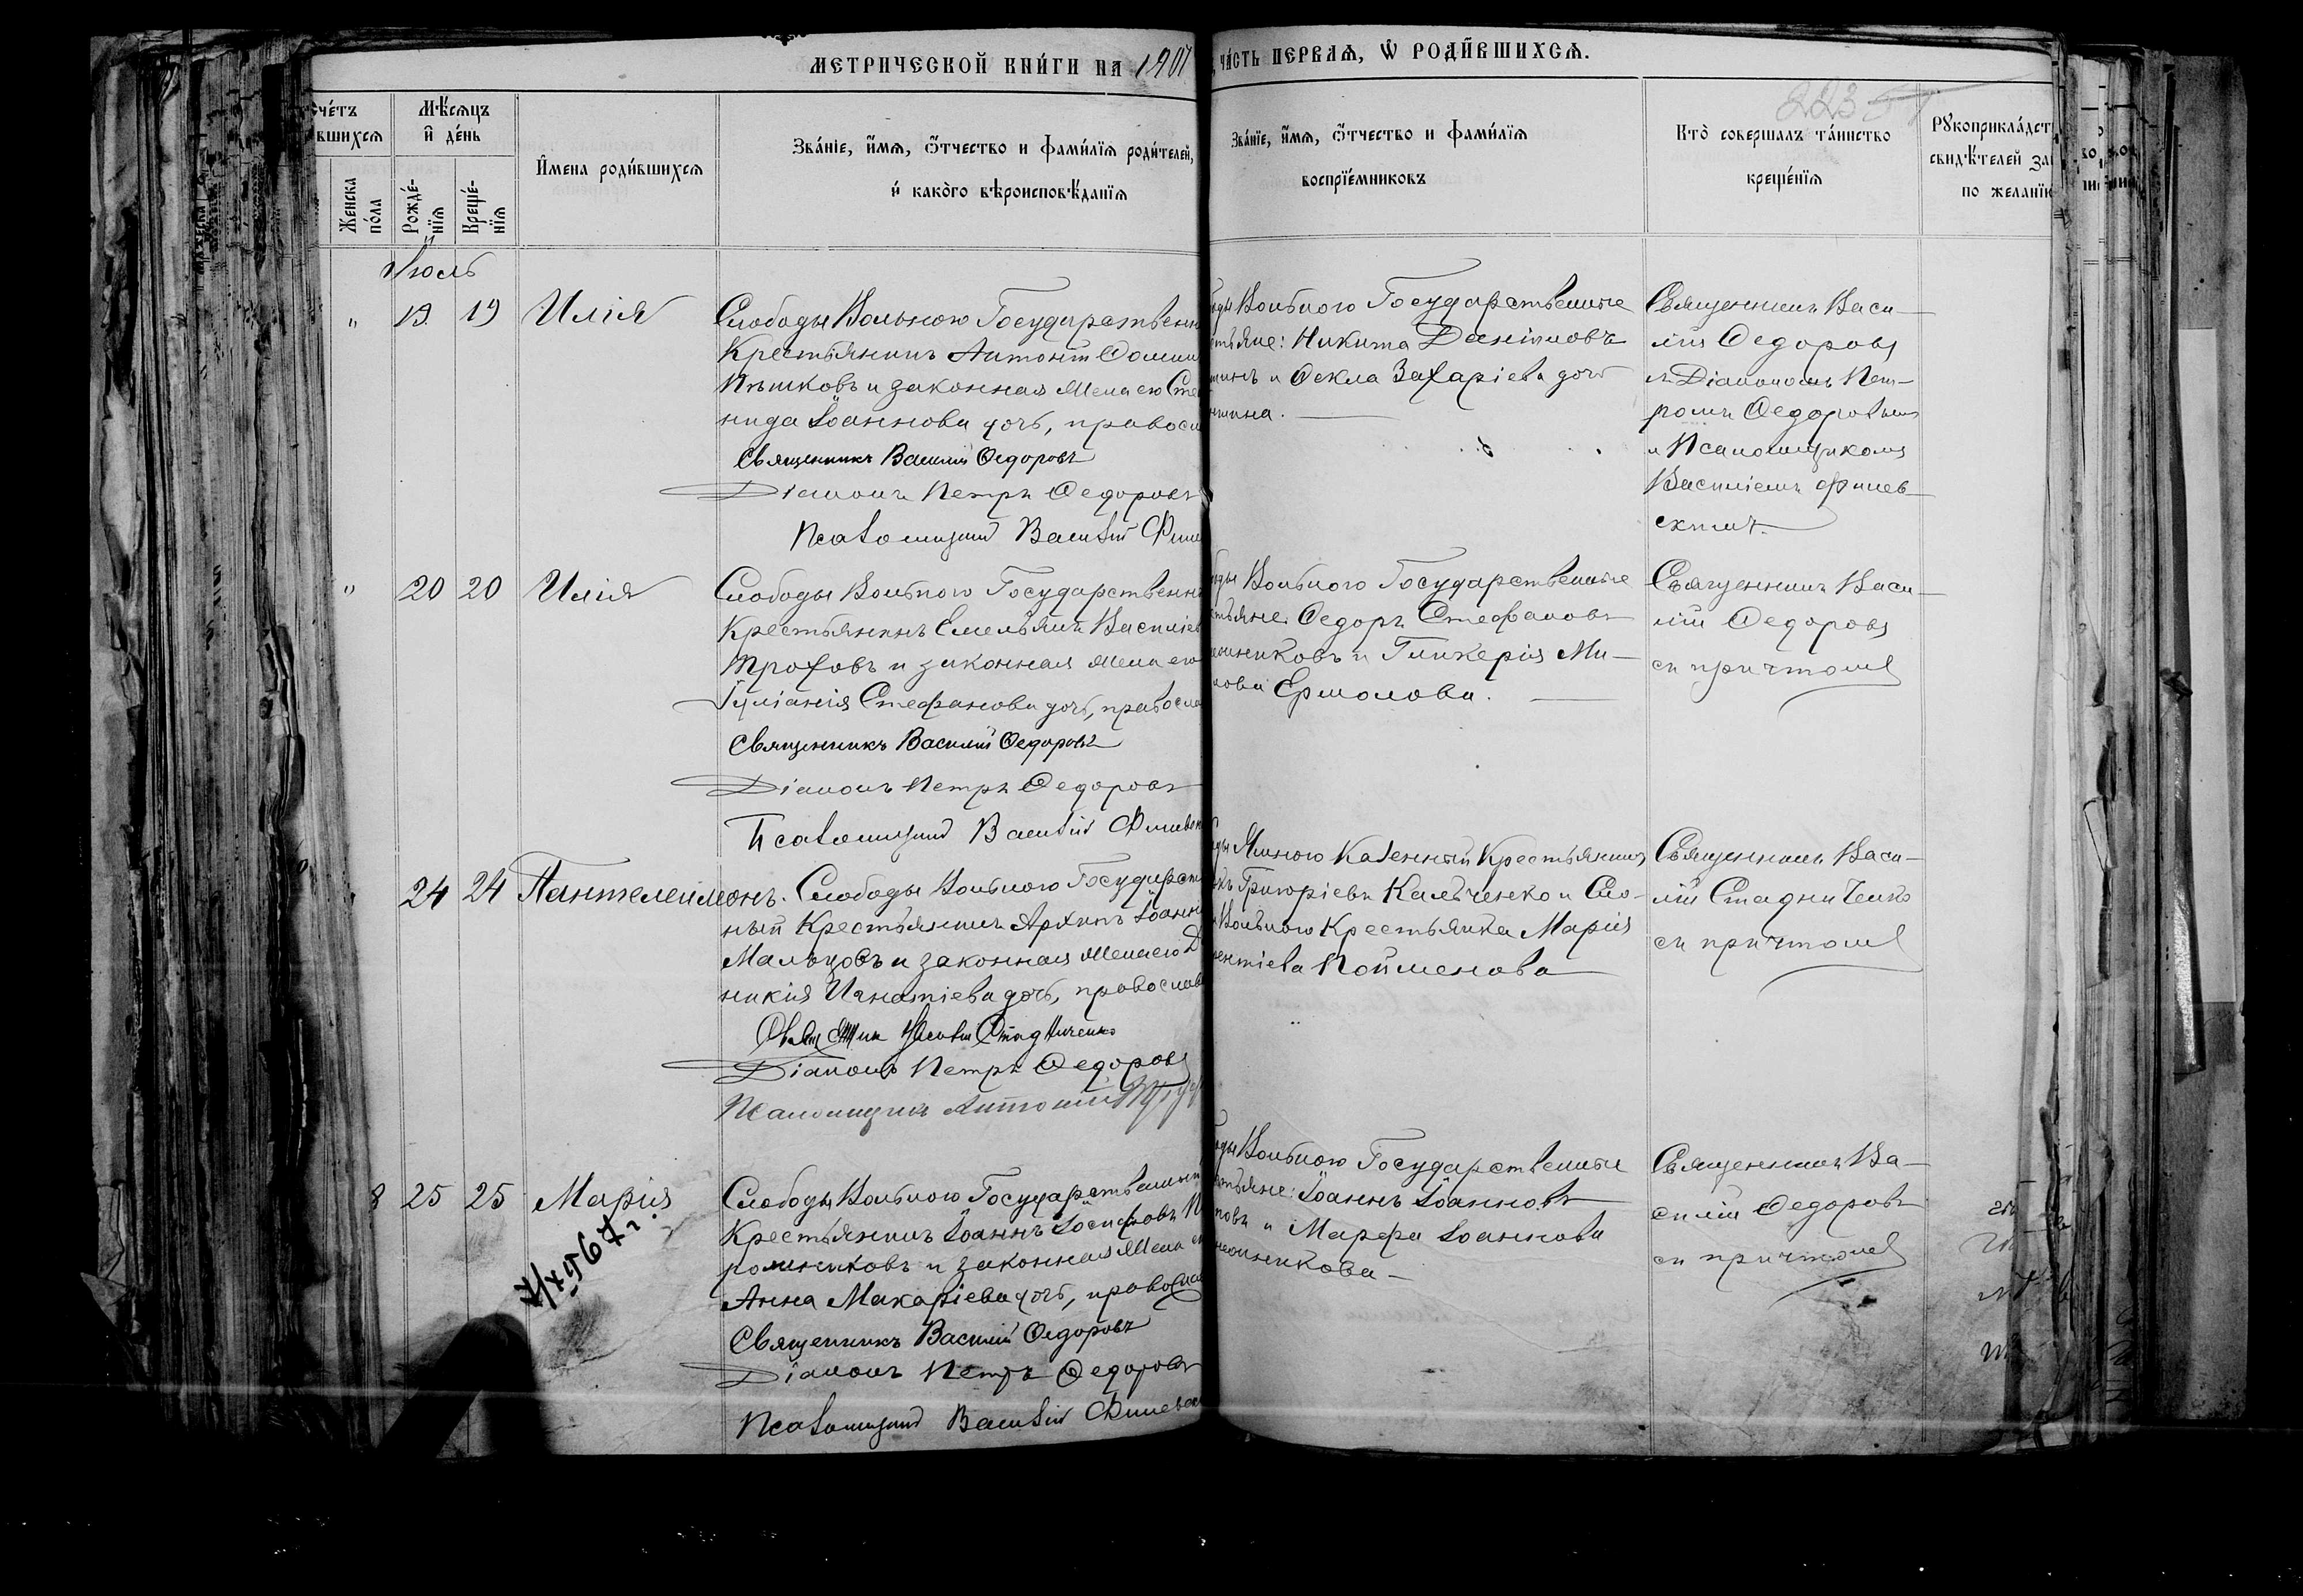 МЕТРИЧЕСКОЙ КНИ́ГИ НА 1901
ЧА́СТЬ ПЕРВАѦ, Ѡ РОДИ́ВШИХСѦ.
счéтъ
вшихсѧ
Женска
по́ла
Мѣ́сѧцъ
и҆ де́нь
Рожде́-
нїѧ
Креще́-
нїѧ
И҆мена роди́вшихсѧ
Зва́нїе, и҆́мѧ, ѻ҆́тчество и фами́лїѧ роди́телей,
и҆ како́гѡ вѣроисповѣ́данїѧ
Зва́нїе, и҆́мѧ, ѻ҆́тчество и фами́лїѧ
воспрїе́мниковъ
Кто̀ совершалъ та́инство
креще́нїѧ
Рꙋкоприкла́дст
свидѣ́телей за
по желанїю
223
Іюль
" 19 19 Илія
Слободы Вольного Государственн
Крестьянинъ Антоній Ѳомин
Пѣшковъ и законная жена его Сте
нида Іоаннова дочь, правосл
Священникъ Василій Ѳедоровъ
Діаконъ Петръ Ѳедоровъ
Псаломщикъ Василій Фин
Вольного Государственные
тьяне: Никита Даніиловъ
и Ѳекла Захаріева дочь
Священникъ Васи-
лій Ѳедоровъ
съ Діакономъ Пет-
ромъ Ѳедоровымъ
и Псаломщикомъ
Василіемъ Финев-
скимъ
" 20 20 Илія
Слободы Вольного Государственн
Крестьянинъ Емельянъ Василіев
Трофовъ и законная жена его
Іуліанія Стефанова дочь, правосла
Священникъ Василій Ѳедоровъ
Діаконъ Петръ Ѳедоровъ
Псаломщикъ Василій Финевск
Вольного Государственные
тьяне: Ѳедоръ Стефановъ
никовъ и Гликерія Ми-
Ермолова.
Священникъ Васи-
лій Ѳедоровъ
съ причтомъ
24 24 Пантелеимонъ.
Слободы Вольного Государст
ный Крестьянинъ Архипъ Іоанн
Мальцовъ и законная жена его Д
никія Игнатіева дочь, православ
Стадниченко
Діаконъ Петръ Ѳедоровъ
Псаломщикъ Антоній
Казенный Крестьянинъ
Григоріевъ Кальченко и Сло-
Вольного Крестьянка Марія
ентіева Пойменова
Священникъ Васи-
лій Стадниченко
съ причтомъ
8 25 25 Марія
Слободы Вольного Государственн
Крестьянинъ Іоаннъ Іосифовъ
и законная жена
Анна Макаріева дочь, правосла
Священникъ Василій Ѳедоровъ
Діаконъ Петръ Ѳедоровъ
Псаломщикъ Василій Финевск
Вольного Государственные
тьяне: Іоаннъ Іоанновъ
и Марѳа Іоаннова
никова
Священникъ Ва-
силій Ѳедоровъ
съ причтомъ